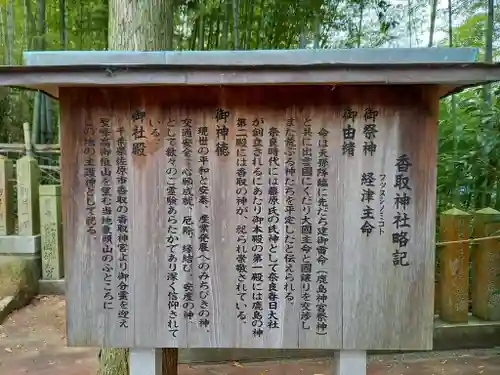 香取神社略記
御祭神 経津主命
フツヌシノミコト
御由緒
命は天孫降臨に先だち建御雷命(鹿島神宮祭神)
と共に出雲国にくだり大国主命と国譲りを交渉し
また荒ぶる神たちを平定したと伝えられる。
奈良時代には藤原氏の氏神として奈良春日大社
が創立されるにあたり御本殿の第一殿には鹿島の神
第二殿には香取の神が、祀られ崇敬されている。
御神徳
現世の平和と安泰、産業発展へのみちびきの神、
交通安全、心願成就、厄除、縁結び、安産の神
として数々のご霊験あらたかであり深く信仰されて
いる。
御社殿
千葉県佐原市香取の香取神宮より御分霊を迎え
聖峰高御位山を望む当地豊頭山のふところに
この地の主護神として祀る。